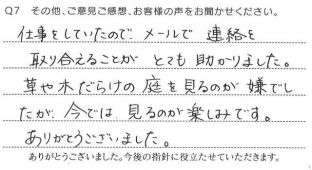 Q7 その他、ご意見ご感想、お客様の声をお聞かせください。
仕事をしていたので、メールで 連絡を
取り合えることが とても 助かりました。
草や木だらけの 庭を見るのが 嫌でし
たが、今では、見るのが楽しみです。
ありがとうございました。
ありがとうございました。今後の指針に役立たせていただきます。